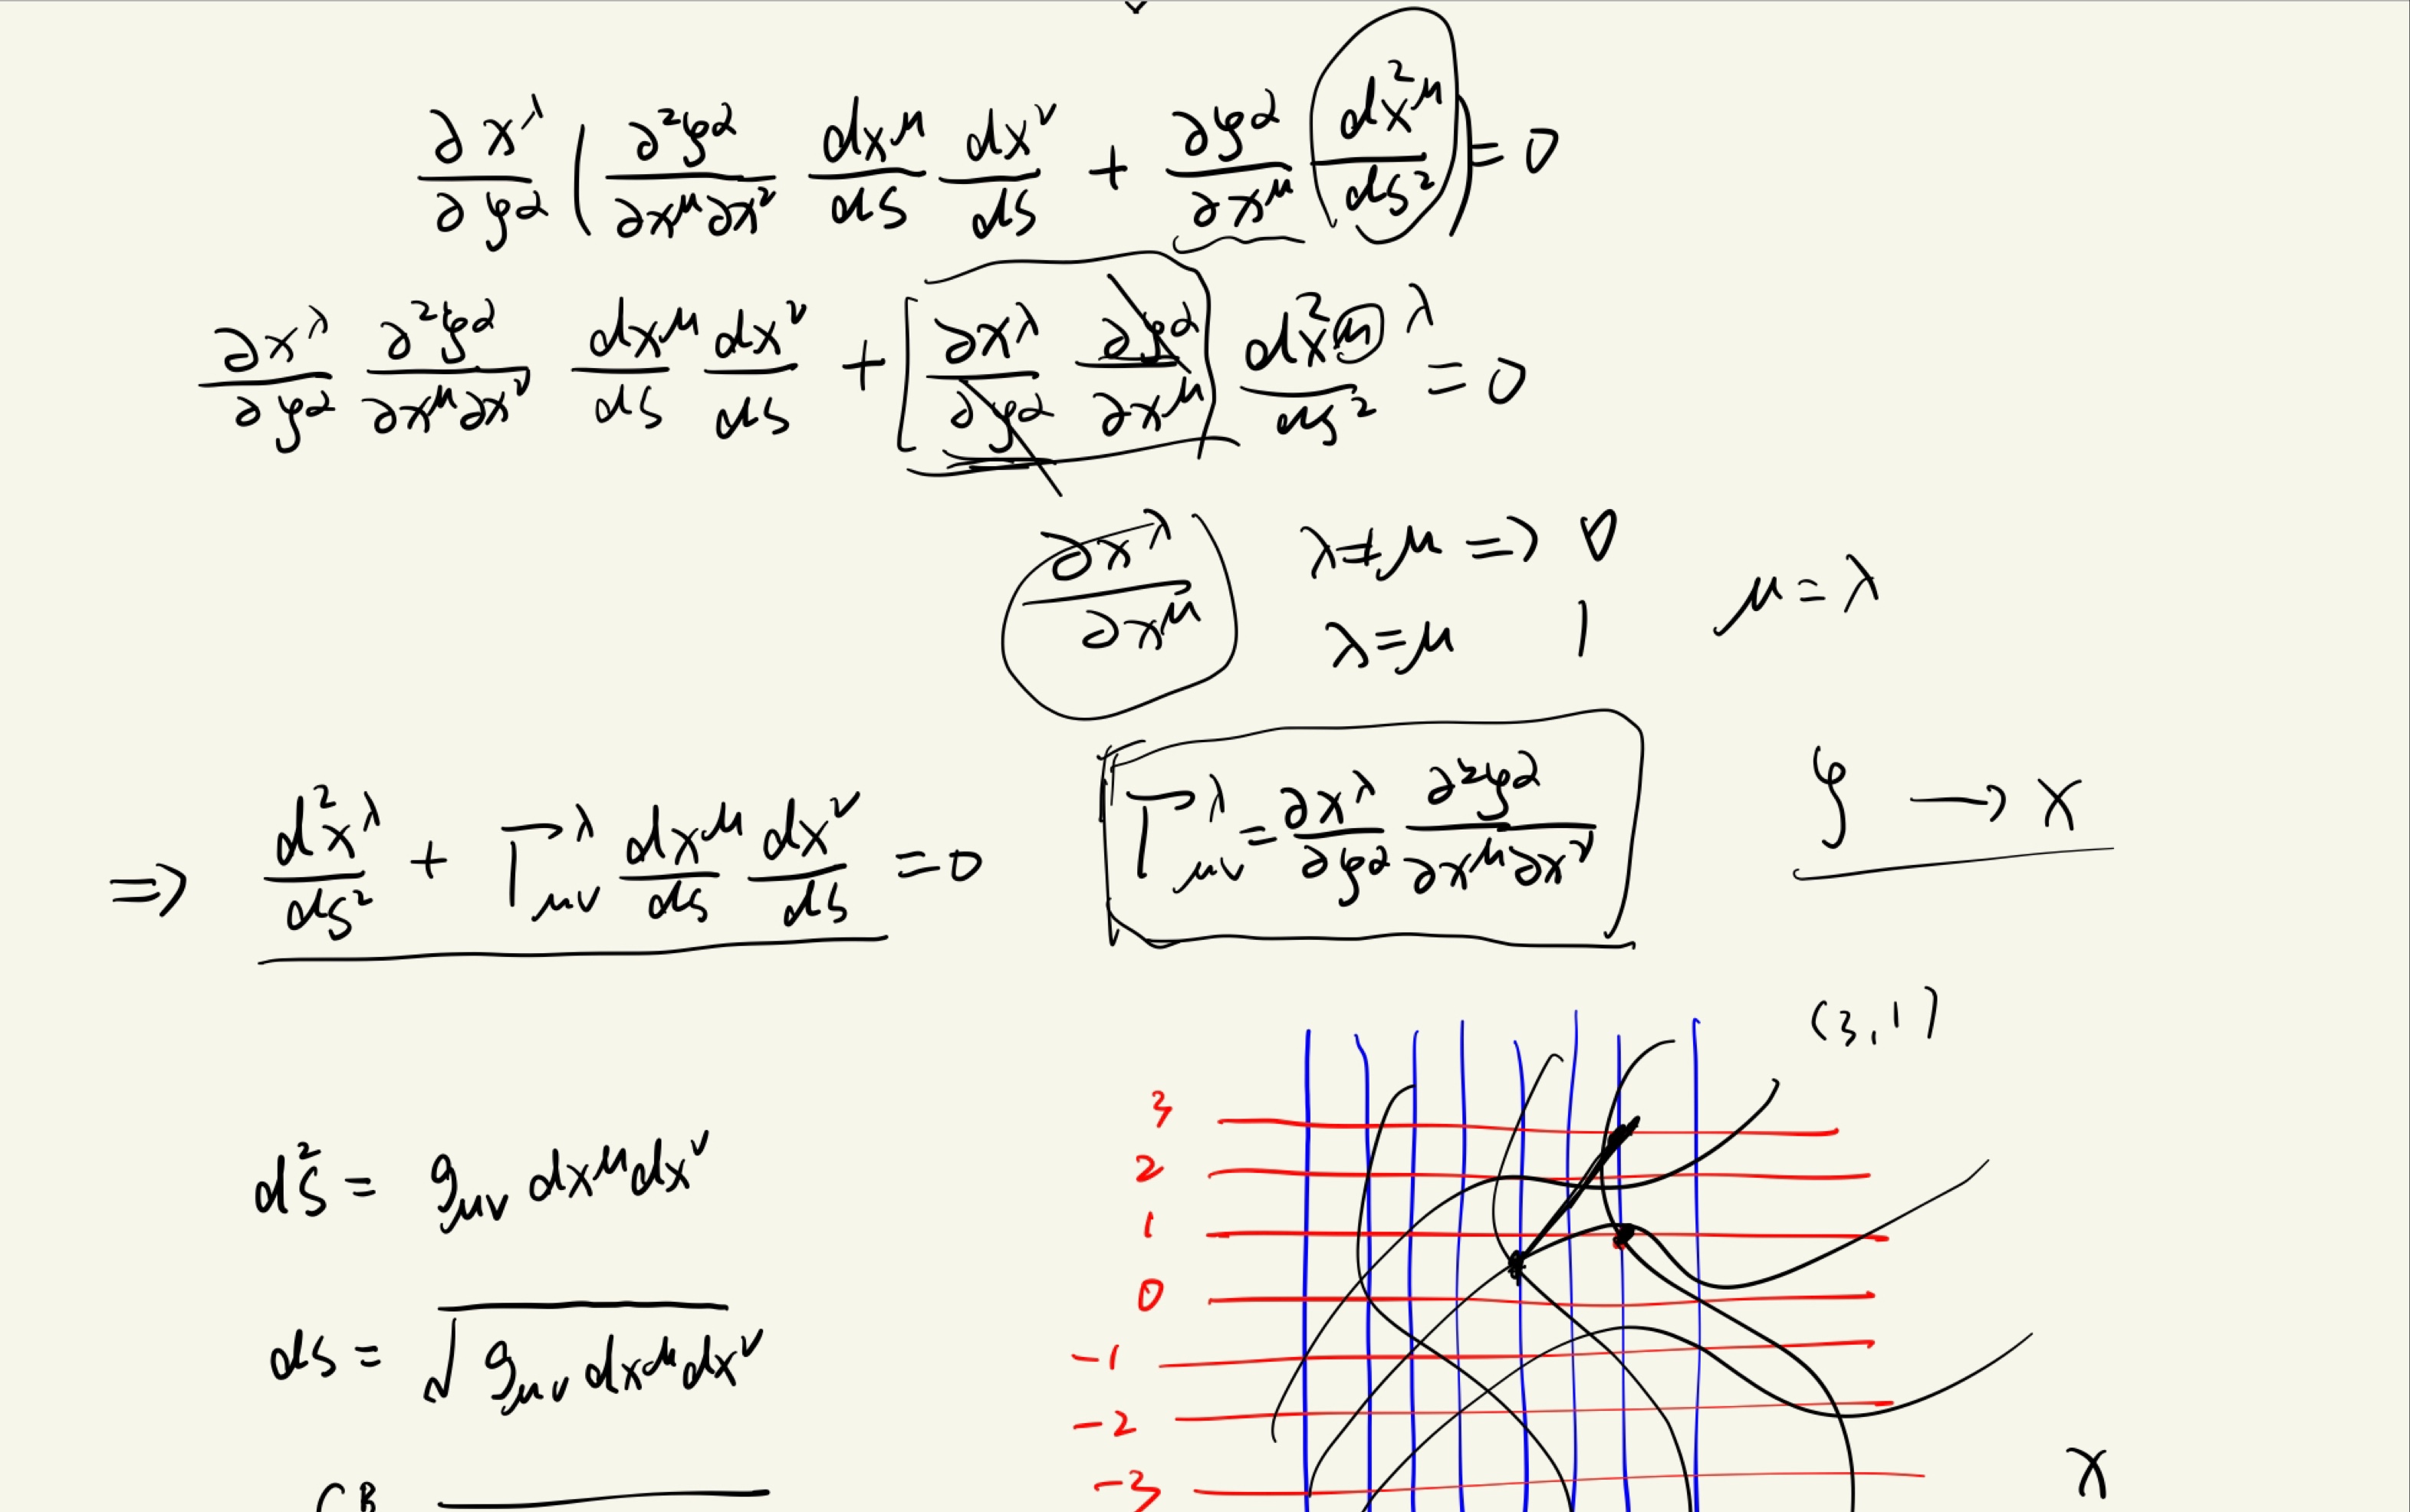 ∂x^λ/∂φ^α ( ∂²φ^α/∂x^μ∂x^ν dx^μ/ds dx^ν/ds + ∂φ^α/∂x^μ d²x^μ/ds² ) = 0
∂x^λ/∂φ^α ∂²φ^α/∂x^μ∂x^ν dx^μ/ds dx^ν/ds + [ ∂x^λ/∂φ^α ∂φ^α/∂x^μ ] d²x^μ/ds² λ = 0
∂x^λ/∂x^μ λ≠μ ⇒ 0
λ=μ 1 μ=λ
⇒ d²x^λ/ds² + Γ^λ_μν dx^μ/ds dx^ν/ds = 0 Γ^λ_μν = ∂x^λ/∂φ^α ∂²φ^α/∂x^μ∂x^ν φ → x
(3,1)
3
ds² = g_μν dx^μ dx^ν 2
1
0
ds = √(g_μν dx^μ dx^ν) -1
-2
-3 x